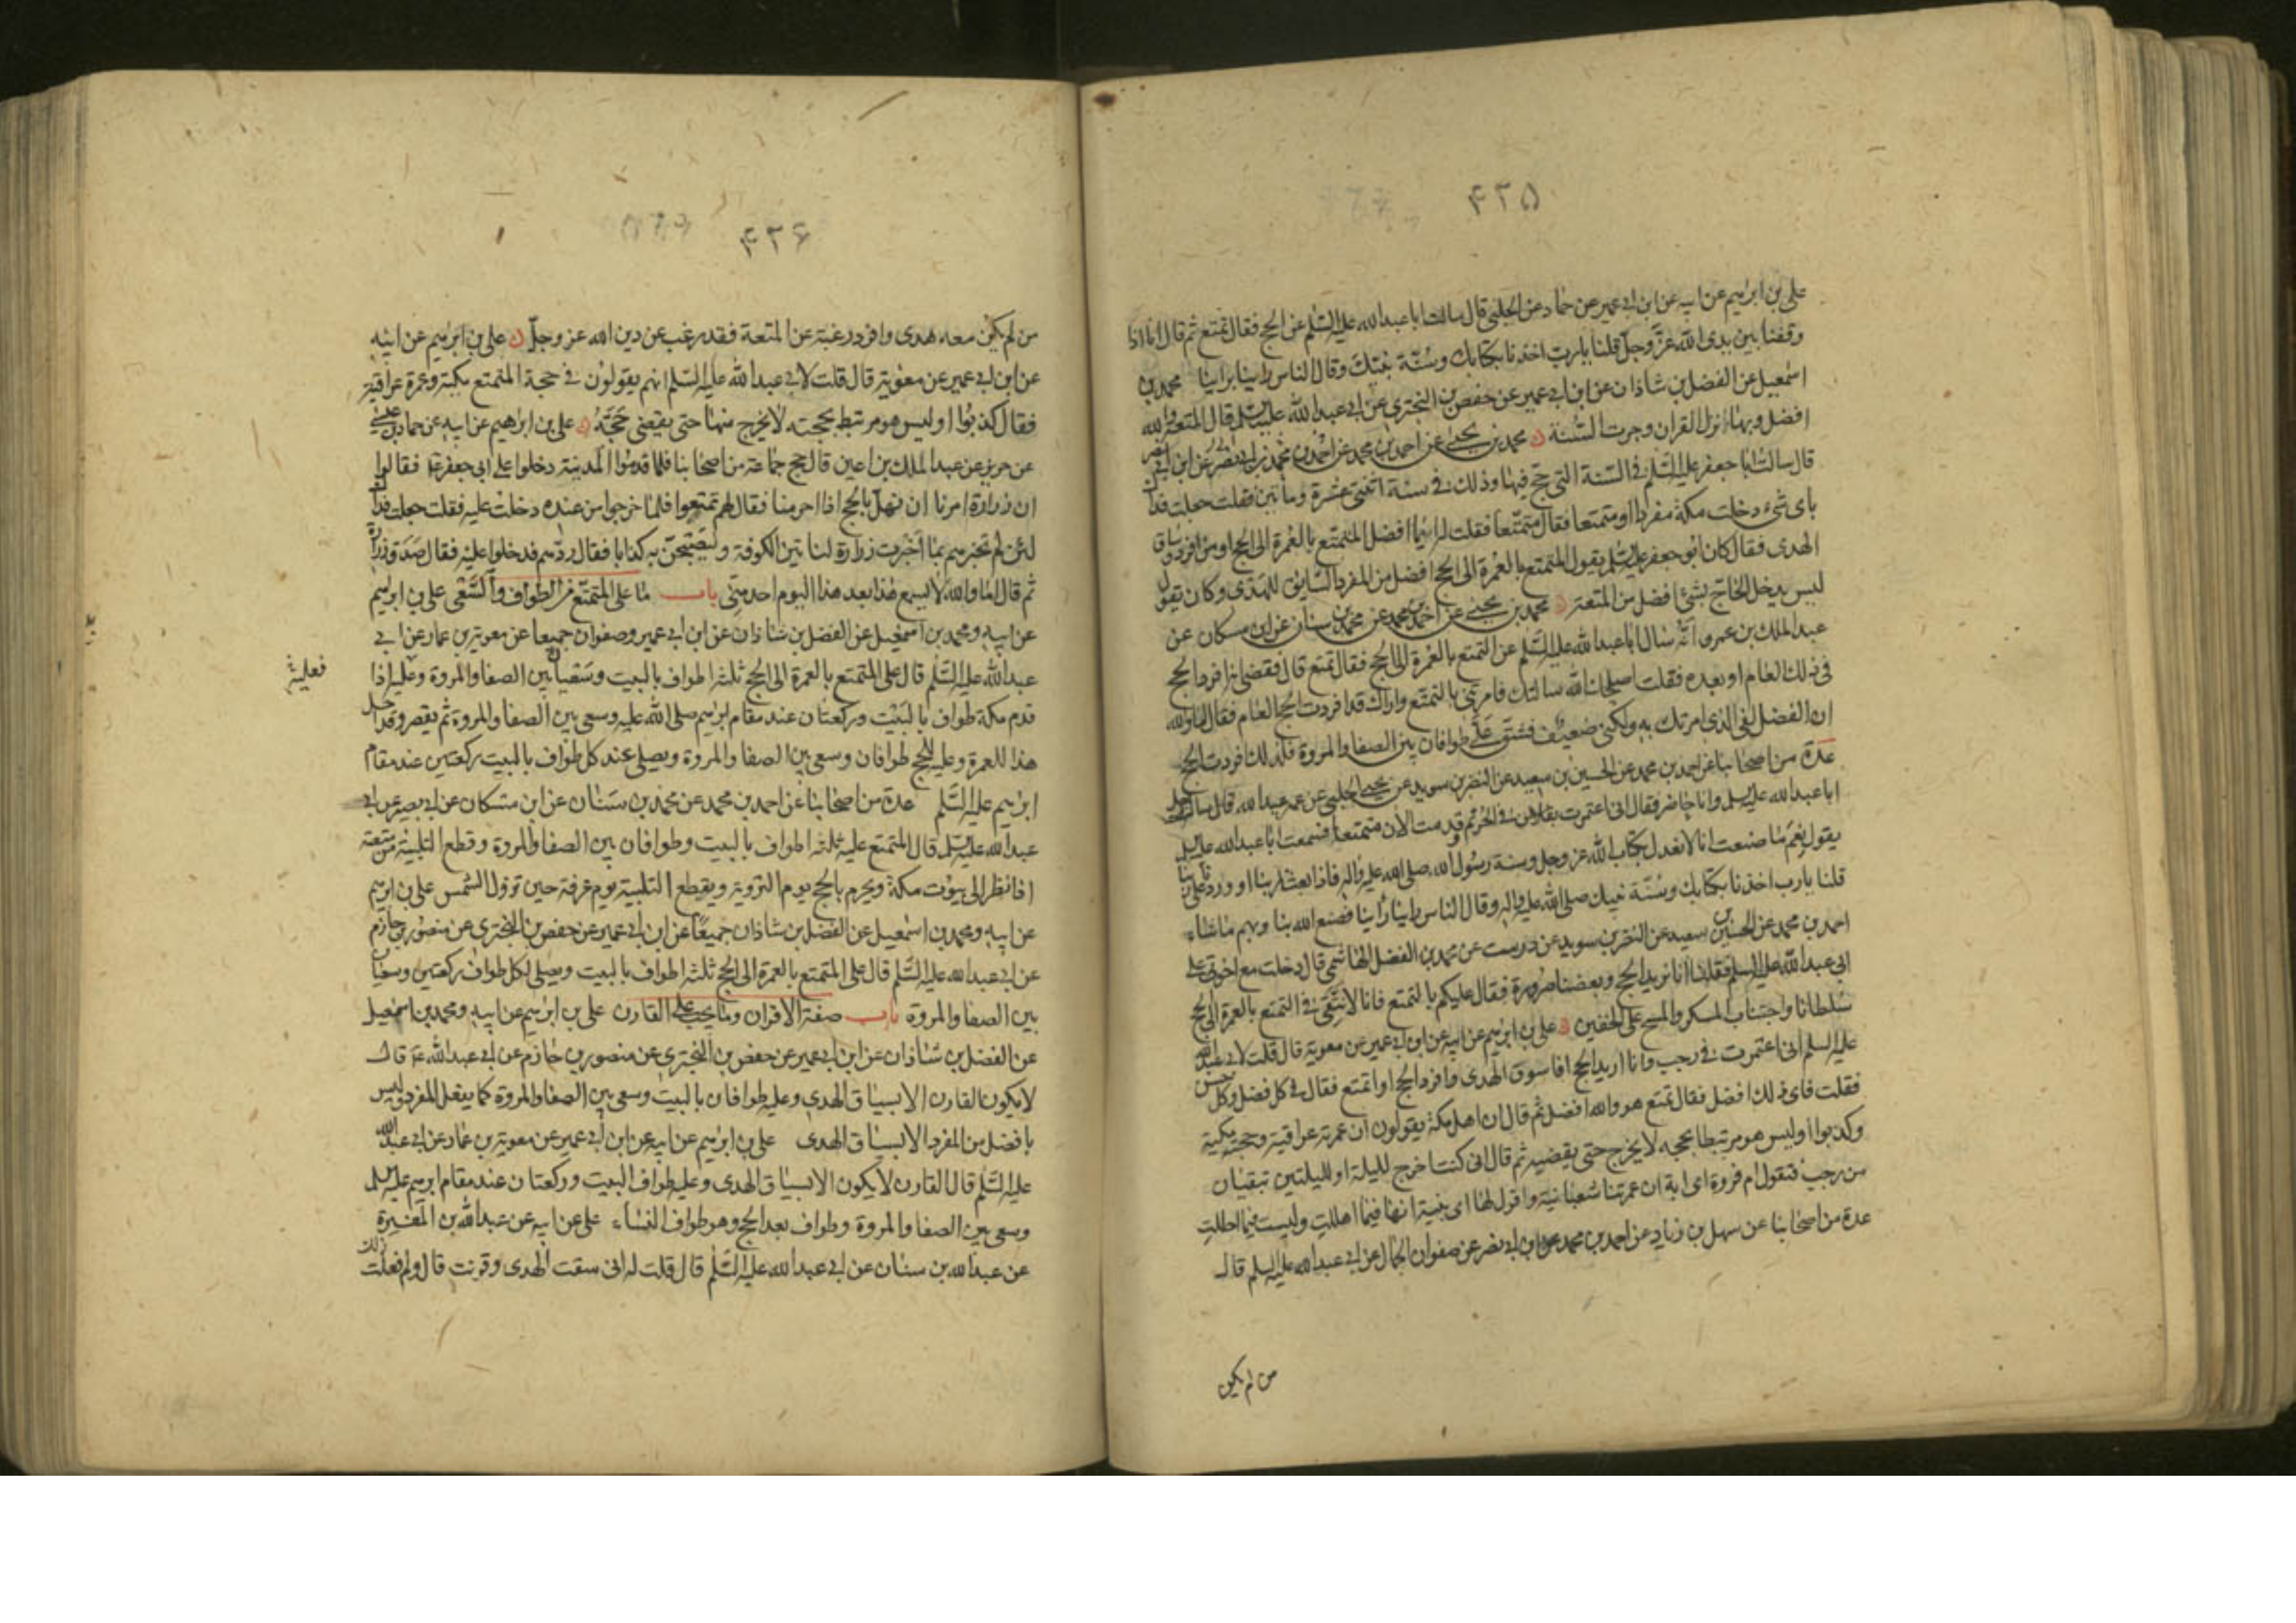 ۴۲۵
علی بن ابرهیم عن ابیه عن ابن ابی عمیر عن حماد عن الحلبی قال سالت ابا عبد الله علیه السّلم عن الحج فقال تمتع ثم قال انا اذا
وقفنا بین یدی الله عزّ وجلّ قلنا یا ربّ اخذنا بکتابک وسُنّة نبیّک وقال الناس راینا براینا محمد بن
اسمعیل عن الفضل بن شاذان عن ابن ابی عمیر عن حفص بن البختری عن ابی عبد الله علیه السلم قال المتعة والله
افضل وبها نزل القران وجرت السّنة محمد بن یحیی عن احمد بن محمد عن احمد بن محمد بن ابی نصر
قال سالت ابا جعفر علیه السّلم فی السّنة التی حج فیها وذلک فی سنة اثنتی عشرة ومأتین فقلت جعلت فداک
بای شیء دخلت مکة مفردا او متمتعا فقال متمتّعا فقلت له ایّما افضل المتمتّع بالعُمرة الی الحج او من افرد وساق
الهدی فقال کان ابو جعفر علیه السلم یقول المتمتع بالعُمرة الی الحج افضل من المفرد السّایق للهدی وکان یقول
لیس یدخل الحاجّ بشئ افضل من المتعة محمد بن یحیی عن احمد بن محمد عن محمد بن سنان عن ابن مسکان عن
عبد الملک بن عمرو انّه سال ابا عبد الله علیه السّلم عن التمتع بالعُمرة الی الحج فقال تمتع قال فقضی انه افرد الحج
فی ذلک العام او بعده فقلت اصلحک الله سالتک فامرتنی بالتمتع واراک قد افردت الحج العام فقال اما والله
ان الفضل لفی الذی امرتک به ولکنی ضعیف فشقّ علیّ طوافان بین الصفا والمروة فلذلک افردت الحج
عدة من اصحابنا عن احمد بن محمد عن الحسین بن سعید عن النضر بن سوید عن یحیی الحلبی عن عمه عبید الله قال سال رجل
ابا عبد الله علیه السلم وانا حاضر فقال انی اعتمرت فی الحرم وقدمت الان متمتعا فسمعت ابا عبد الله علیه السلم
یقول نِعمَ ما صنعت انا لا نعدل بکتاب الله عز وجل وسنة رسول الله صلی الله علیه واله فاذا بعثنا ربنا او وردنا علی ربنا
قلنا یا رب اخذنا بکتابک وسُنّة نبیک صلی الله علیه واله وقال الناس راینا رأینا فصنع الله بنا وبهم ما شاء
احمد بن محمد عن الحسین بن سعید عن النضر بن سوید عن درست عن محمد بن الفضل الهاشمی قال دخلت مع اخوتی علی
ابی عبد الله علیه السلم فقلنا انا نرید الحج وبعضنا صَرورة فقال علیکم بالتمتع فانا لا نتّقی فی التمتع بالعمرة الی الحج
سُلطانا واجتناب المسکر والمسح علی الخفین علی بن ابرهیم عن ابیه عن ابن ابی عمیر عن معویة قال قلت لابی عبد الله
علیه السلم انی اعتمرت فی رجب وانا ارید الحج افاسوق الهدی وافرد الحج او اتمتع فقال فی کل فضل وکل حسن
فقلت فای ذلک افضل فقال تمتع هو والله افضل ثم قال ان اهل مکة یقولون ان عمرته عراقیة وحجته مکیة
وکذبوا اولیس هو مرتبطا بحجه لا یخرج حتی یقضیه ثم قال انی کنت اخرج للیلة او للیلتین تبقیان
من رجب فتقول ام فروة ای ابة ان عمرتنا شعبانیة واقول لها ای بنیة انها فیما اهللتِ ولیست فیما احللتِ
عدة من اصحابنا عن سهل بن زیاد عن احمد بن محمد بن ابی نصر عن صفوان الجمال عن ابی عبد الله علیه السلم قال
من لم یکن
۴۲۶
من لم یکن معه هدی وافرد رغبة عن المتعة فقد رغب عن دین الله عز وجلّ علی بن ابرهیم عن ابیه
عن ابن ابی عمیر عن معویة قال قلت لابی عبد الله علیه السّلم انهم یقولون فی حجة المتمتع مکیة وعمرة عراقیة
فقال کذبوا اولیس هو مرتبط بحجته لا یخرج منها حتی یقضی حَجّهُ علی بن ابرهیم عن ابیه عن حماد بن عیسی
عن حریز عن عبد الملک بن اعین قال حج جماعة من اصحابنا فلما قدموا المدینة دخلوا علی ابی جعفر ع فقالوا
ان زرارة امرنا ان نهلّ بالحج اذا احرمنا فقال لهم تمتعوا فلما خرجوا من عنده دخلت علیه فقلت جعلت فداک
لئن لم تخبرهم بما اخبرت زرارة لناتین الکوفة ولیصبحنّ به کذابا فقال ردّهم فدخلوا علیه فقال صَدَق زرارة
ثم قال اما والله لا یسمع هذا بعد هذا الیوم احد منّی باب ما علی المتمتّع من الطواف والسّعی علی بن ابرهیم
عن ابیه ومحمد بن اسمعیل عن الفضل بن شاذان عن ابن ابی عمیر وصفوان جمیعا عن معویة بن عمار عن ابی
عبد الله علیه السّلم قال علی المتمتع بالعمرة الی الحج ثلثة اطواف بالبیت وسَعْیان بین الصفا والمروة وعلیه اذا
فعلیه
قدم مکة طواف بالبَیْت ورکعتان عند مقام ابرهیم صلی الله علیه وسعی بین الصفا والمروة ثم یقصر وقد احل
هذا للعمرة وعلیه للحج طوافان وسعی بین الصفا والمروة ویصلی عند کل طواف بالبیت رکعتین عند مقام
ابرهیم علیه السّلم عدة من اصحابنا عن احمد بن محمد عن محمد بن سنان عن ابن مسکان عن ابی بصیر عن ابی
عبد الله علیه السلم قال المتمتع علیه ثلثة اطواف بالبیت وطوافان بین الصفا والمروة وقطع التلبیة من متعته
اذا نظر الی بیوت مکة ویحرم بالحج یوم الترویة ویقطع التلبیة یوم عرفة حین تزول الشمس علی بن ابرهیم
عن ابیه ومحمد بن اسمعیل عن الفضل بن شاذان جمیعًا عن ابن ابی عمیر عن حفص بن البختری عن منصور بن حازم
عن ابی عبد الله علیه السّلم قال علی المتمتع بالعمرة الی الحج ثلثة اطواف بالبیت ویصلی لکل طواف رکعتین وسعیان
بین الصفا والمروة باب صفة الاقران وما یجب علی القارن علی بن ابرهیم عن ابیه ومحمد بن اسمعیل
عن الفضل بن شاذان عن ابن ابی عمیر عن حفص بن البختری عن منصور بن حازم عن ابی عبد الله ع قال
لا یکون القارن الا بسیاق الهدی وعلیه طوافان بالبیت وسعی بین الصفا والمروة کما یفعل المفرد ولیس
بافضل من المفرد الا بسیاق الهدی علی بن ابرهیم عن ابیه عن ابن ابی عمیر عن معویة بن عمار عن ابی عبد الله
علیه السّلم قال القارن لا یکون الا بسیاق الهدی وعلیه طواف البیت ورکعتان عند مقام ابرهیم علیه السلم
وسعی بین الصفا والمروة وطواف بعد الحج وهو طواف النساء علی عن ابیه عن عبد الله بن المغیرة
عن عبد الله بن سنان عن ابی عبد الله علیه السّلم قال قلت له انی سقت الهدی وقرنت قال ولم فعلت ذلک